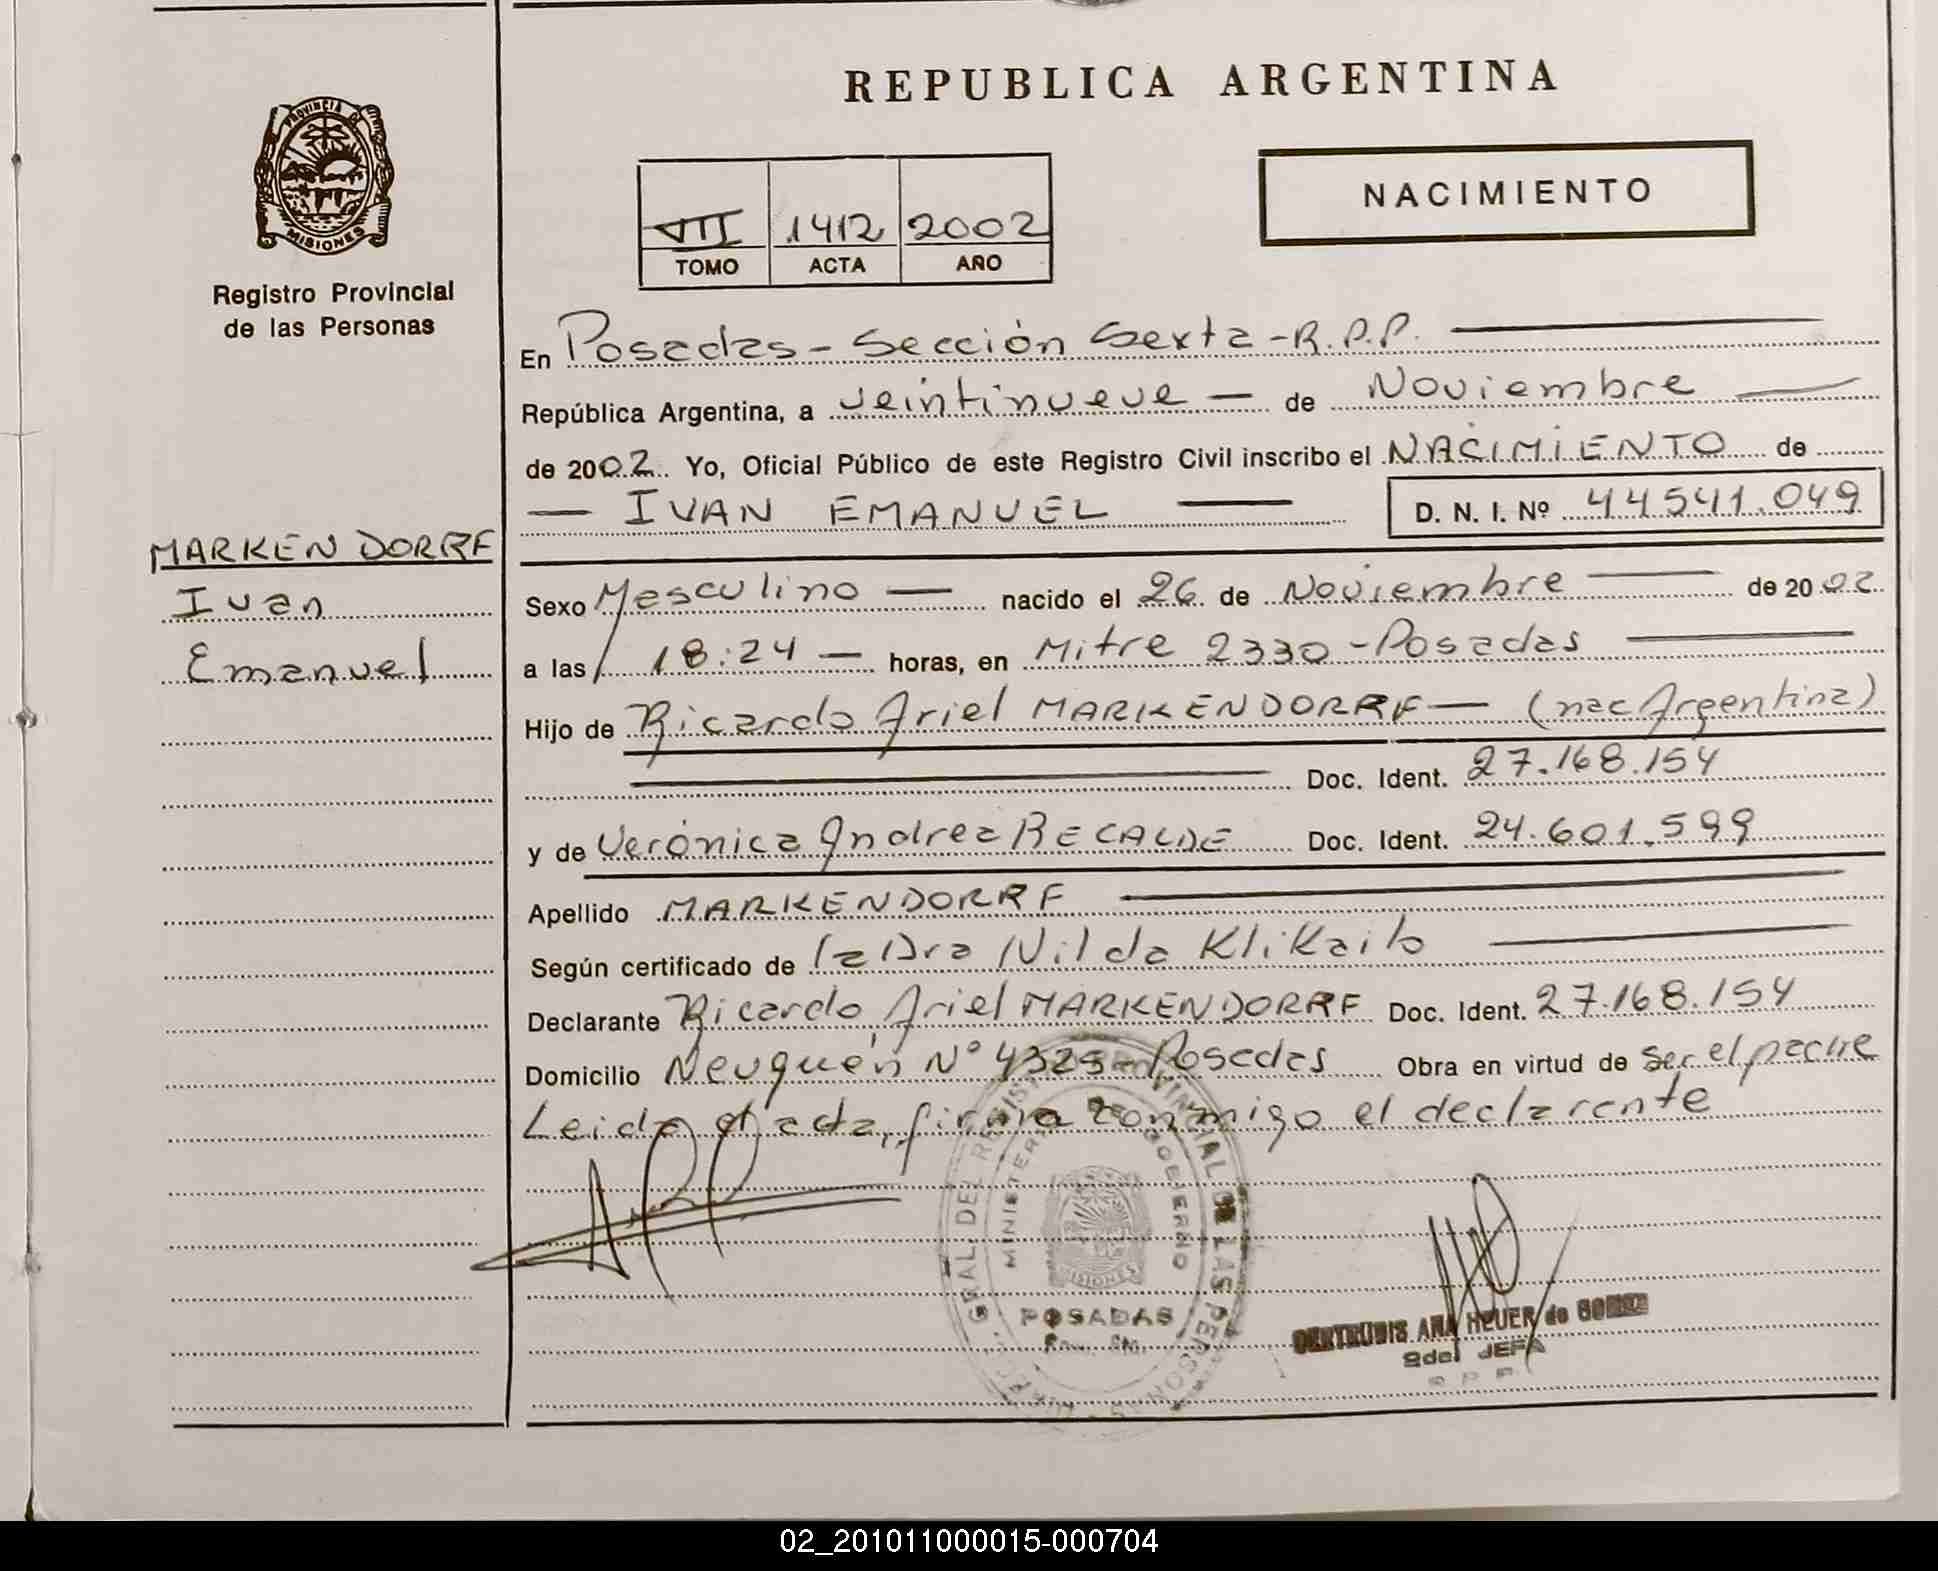 REPUBLICA ARGENTINA
PROVINCIA DE
MISIONES
Registro Provincial
de las Personas
NACIMIENTO
VII 1412 2002
TOMO ACTA AÑO
En Posadas - Sección Sexta - R.P.P.
República Argentina, a veintinueve — de Noviembre —
de 2002. Yo, Oficial Público de este Registro Civil inscribo el NACIMIENTO de
— IVAN EMANUEL — D. N. I. Nº 44541.049
MARKENDORFF
Ivan
Emanuel
Sexo Masculino — nacido el 26 de Noviembre — de 2002
a las 18:24 — horas, en Mitre 2330 - Posadas —
Hijo de Ricardo Ariel MARKENDORFF — (nac Argentina)
Doc. Ident. 27.168.154
y de Verónica Andrea RECALDE Doc. Ident. 24.601.599
Apellido MARKENDORFF —
Según certificado de la Dra Nilda Klikailo —
Declarante Ricardo Ariel MARKENDORFF Doc. Ident. 27.168.154
Domicilio Neuquén Nº 4325 - Posadas Obra en virtud de ser el padre
Leida el acta, firma conmigo el declarante
GRAL. DEL REGISTRO PROVINCIAL DE LAS PERSONAS
MINISTERIO DE GOBIERNO
MISIONES
POSADAS
GERTRUDIS ANA HEUER de GOMEZ
JEFA
02_201011000015-000704